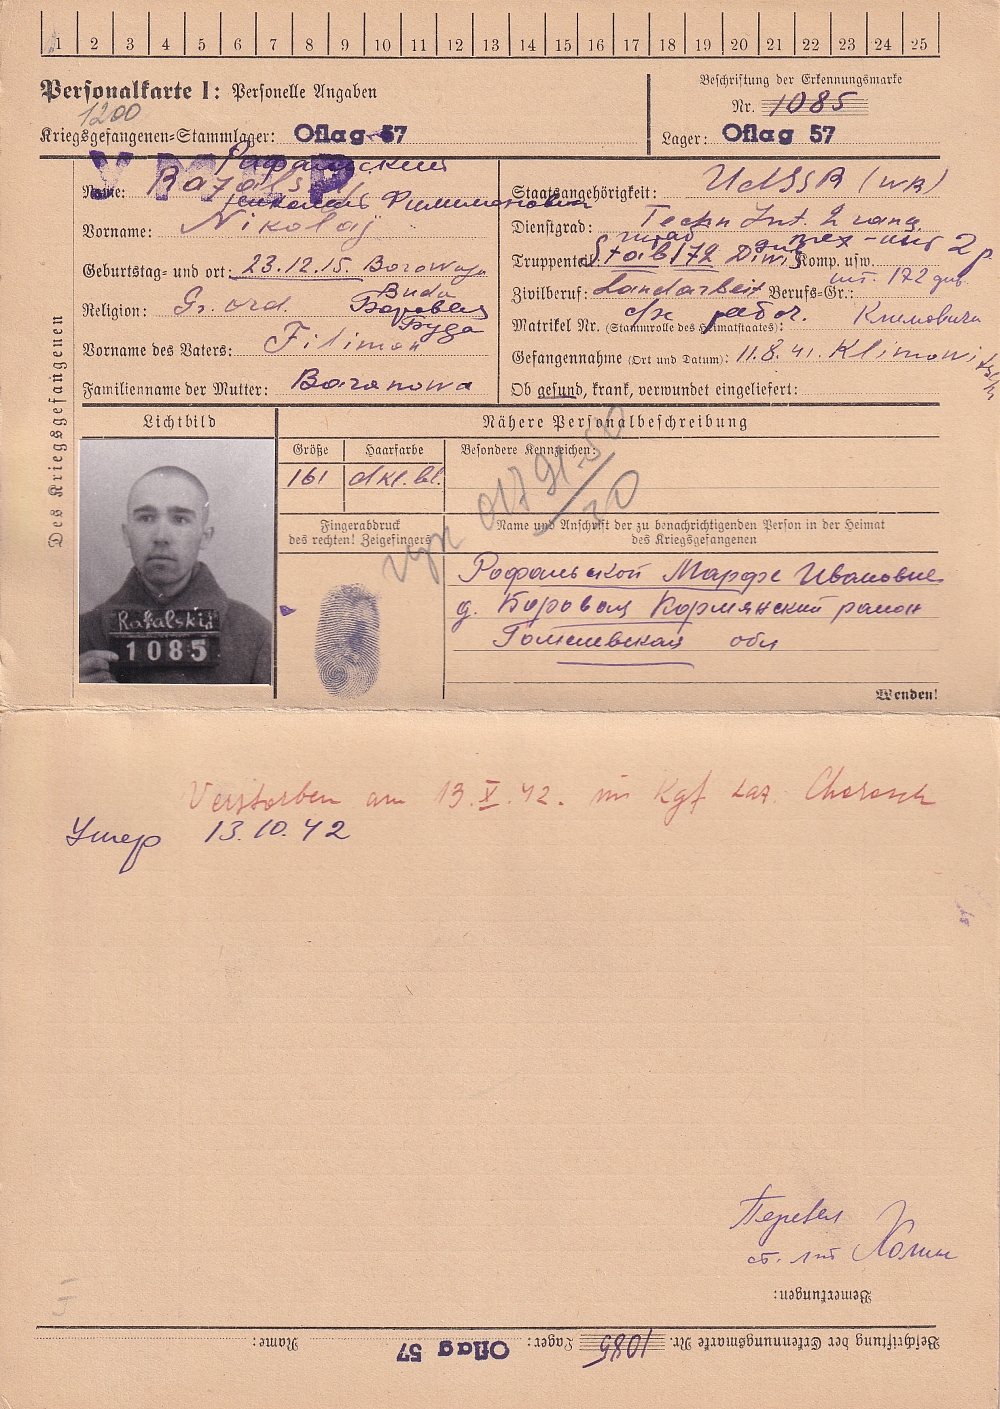 1 2 3 4 5 6 7 8 9 10 11 12 13 14 15 16 17 18 19 20 21 22 23 24 25
Personalkarte I: Personelle Angaben
1200
Kriegsgefangenen-Stammlager: Oflag 57
Beschriftung der Erkennungsmarke
Nr. 1085
Lager: Oflag 57
УМЕР
Рафальский
Name: Rafalski
Николай Филимонович
Vorname: Nikolaj
Geburtstag- und ort: 23.12.15. Borowaja
Buda
Religion: Gr. ord. Боровая
Буда
Vorname des Vaters: Filimon
Familienname der Mutter: Baranowa
Staatsangehörigkeit: UdSSR (WR)
Dienstgrad: Techn Int. 2 rang
штаб 2 р
Truppenteil: Stab/172 Divis Komp. usw.
172 див.
Zivilberuf: Landarbeit Berufs-Gr.:
с/х рабоч.
Matrikel Nr. (Stammrolle des Heimatstaates): Климовичи
Gefangennahme (Ort und Datum): 11.8.41. Klimowitschi
Ob gesund, krank, verwundet eingeliefert:
Des Kriegsgefangenen
Lichtbild
Nähere Personalbeschreibung
Größe Haarfarbe Besondere Kennzeichen:
161 dkl. bl.
Fingerabdruck
des rechten! Zeigefingers
Name und Anschrift der zu benachrichtigenden Person in der Heimat
des Kriegsgefangenen
Рофальской Марфе Ивановне
д. Боровая Кормянский район
Гомелевская обл
Rafalskij
1085
Wenden!
Verstorben am 13.X.42. im Kgf Laz. Chorosch
Умер 13.10.42
Перевел
ст. л-т
Bemerkungen:
Beschriftung der Erkennungsmarke Nr. 1085 Lager: Oflag 57 Name: